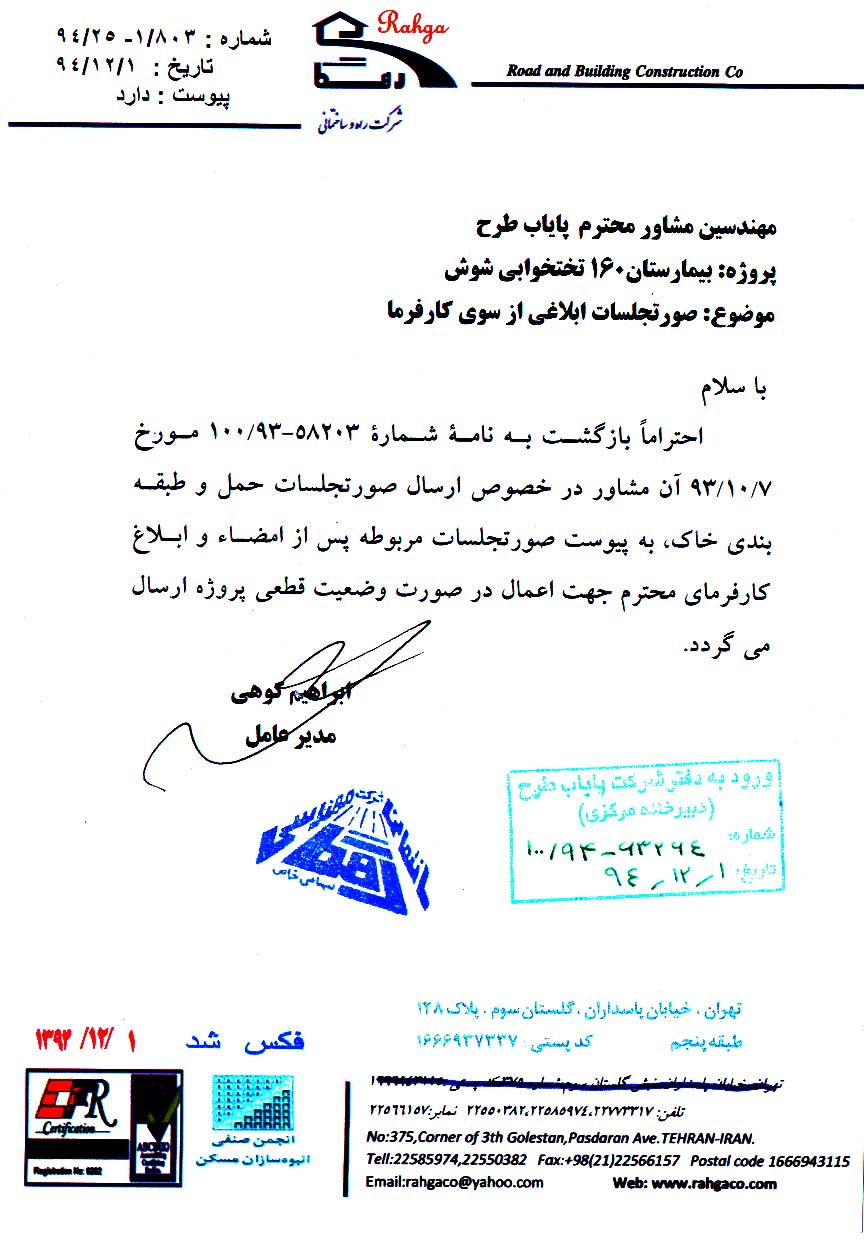 شماره : ۹۴/۲۵ -۱/۸۰۳
تاریخ : ۹۴/۱۲/۱
پیوست : دارد
Rahga
رهگا
شرکت راه و ساختمانی
Road and Building Construction Co
مهندسین مشاور محترم پایاب طرح
پروژه: بیمارستان۱۶۰ تختخوابی شوش
موضوع: صورتجلسات ابلاغی از سوی کارفرما
با سلام
احتراماً بازگشت به نامۀ شمارۀ ۵۸۲۰۳-۱۰۰/۹۳ مورخ
۹۳/۱۰/۷ آن مشاور در خصوص ارسال صورتجلسات حمل و طبقه
بندی خاک، به پیوست صورتجلسات مربوطه پس از امضاء و ابلاغ
کارفرمای محترم جهت اعمال در صورت وضعیت قطعی پروژه ارسال
می گردد.
ابراهیم کوهی
مدیر عامل
شرکت مهندسی
رهگا
سهامی خاص
ورود به دفتر شرکت پایاب طرح
(دبیرخانه مرکزی)
شماره: ۱۰۰/۹۴-۹۳۲۹۴
تاریخ: ۹۴/۱۲/۱
تهران ، خیابان پاسداران ، گلستان سوم ، پلاک ۱۲۸
طبقه پنجم کد پستی : ۱۶۶۶۹۳۷۳۳۷
فکس شد ۱ /۱۲/ ۱۳۹۴
Certification
Registration No: 0202
انجمن صنفی
انبوه سازان مسکن
تلفن: ۲۲۵۵۰۳۸۲،۲۲۵۸۵۹۷۴،۲۲۷۷۳۳۱۷ نمابر:۲۲۵۶۶۱۵۷
No:375,Corner of 3th Golestan,Pasdaran Ave.TEHRAN-IRAN.
Tell:22585974,22550382 Fax:+98(21)22566157 Postal code 1666943115
Email:rahgaco@yahoo.com Web: www.rahgaco.com